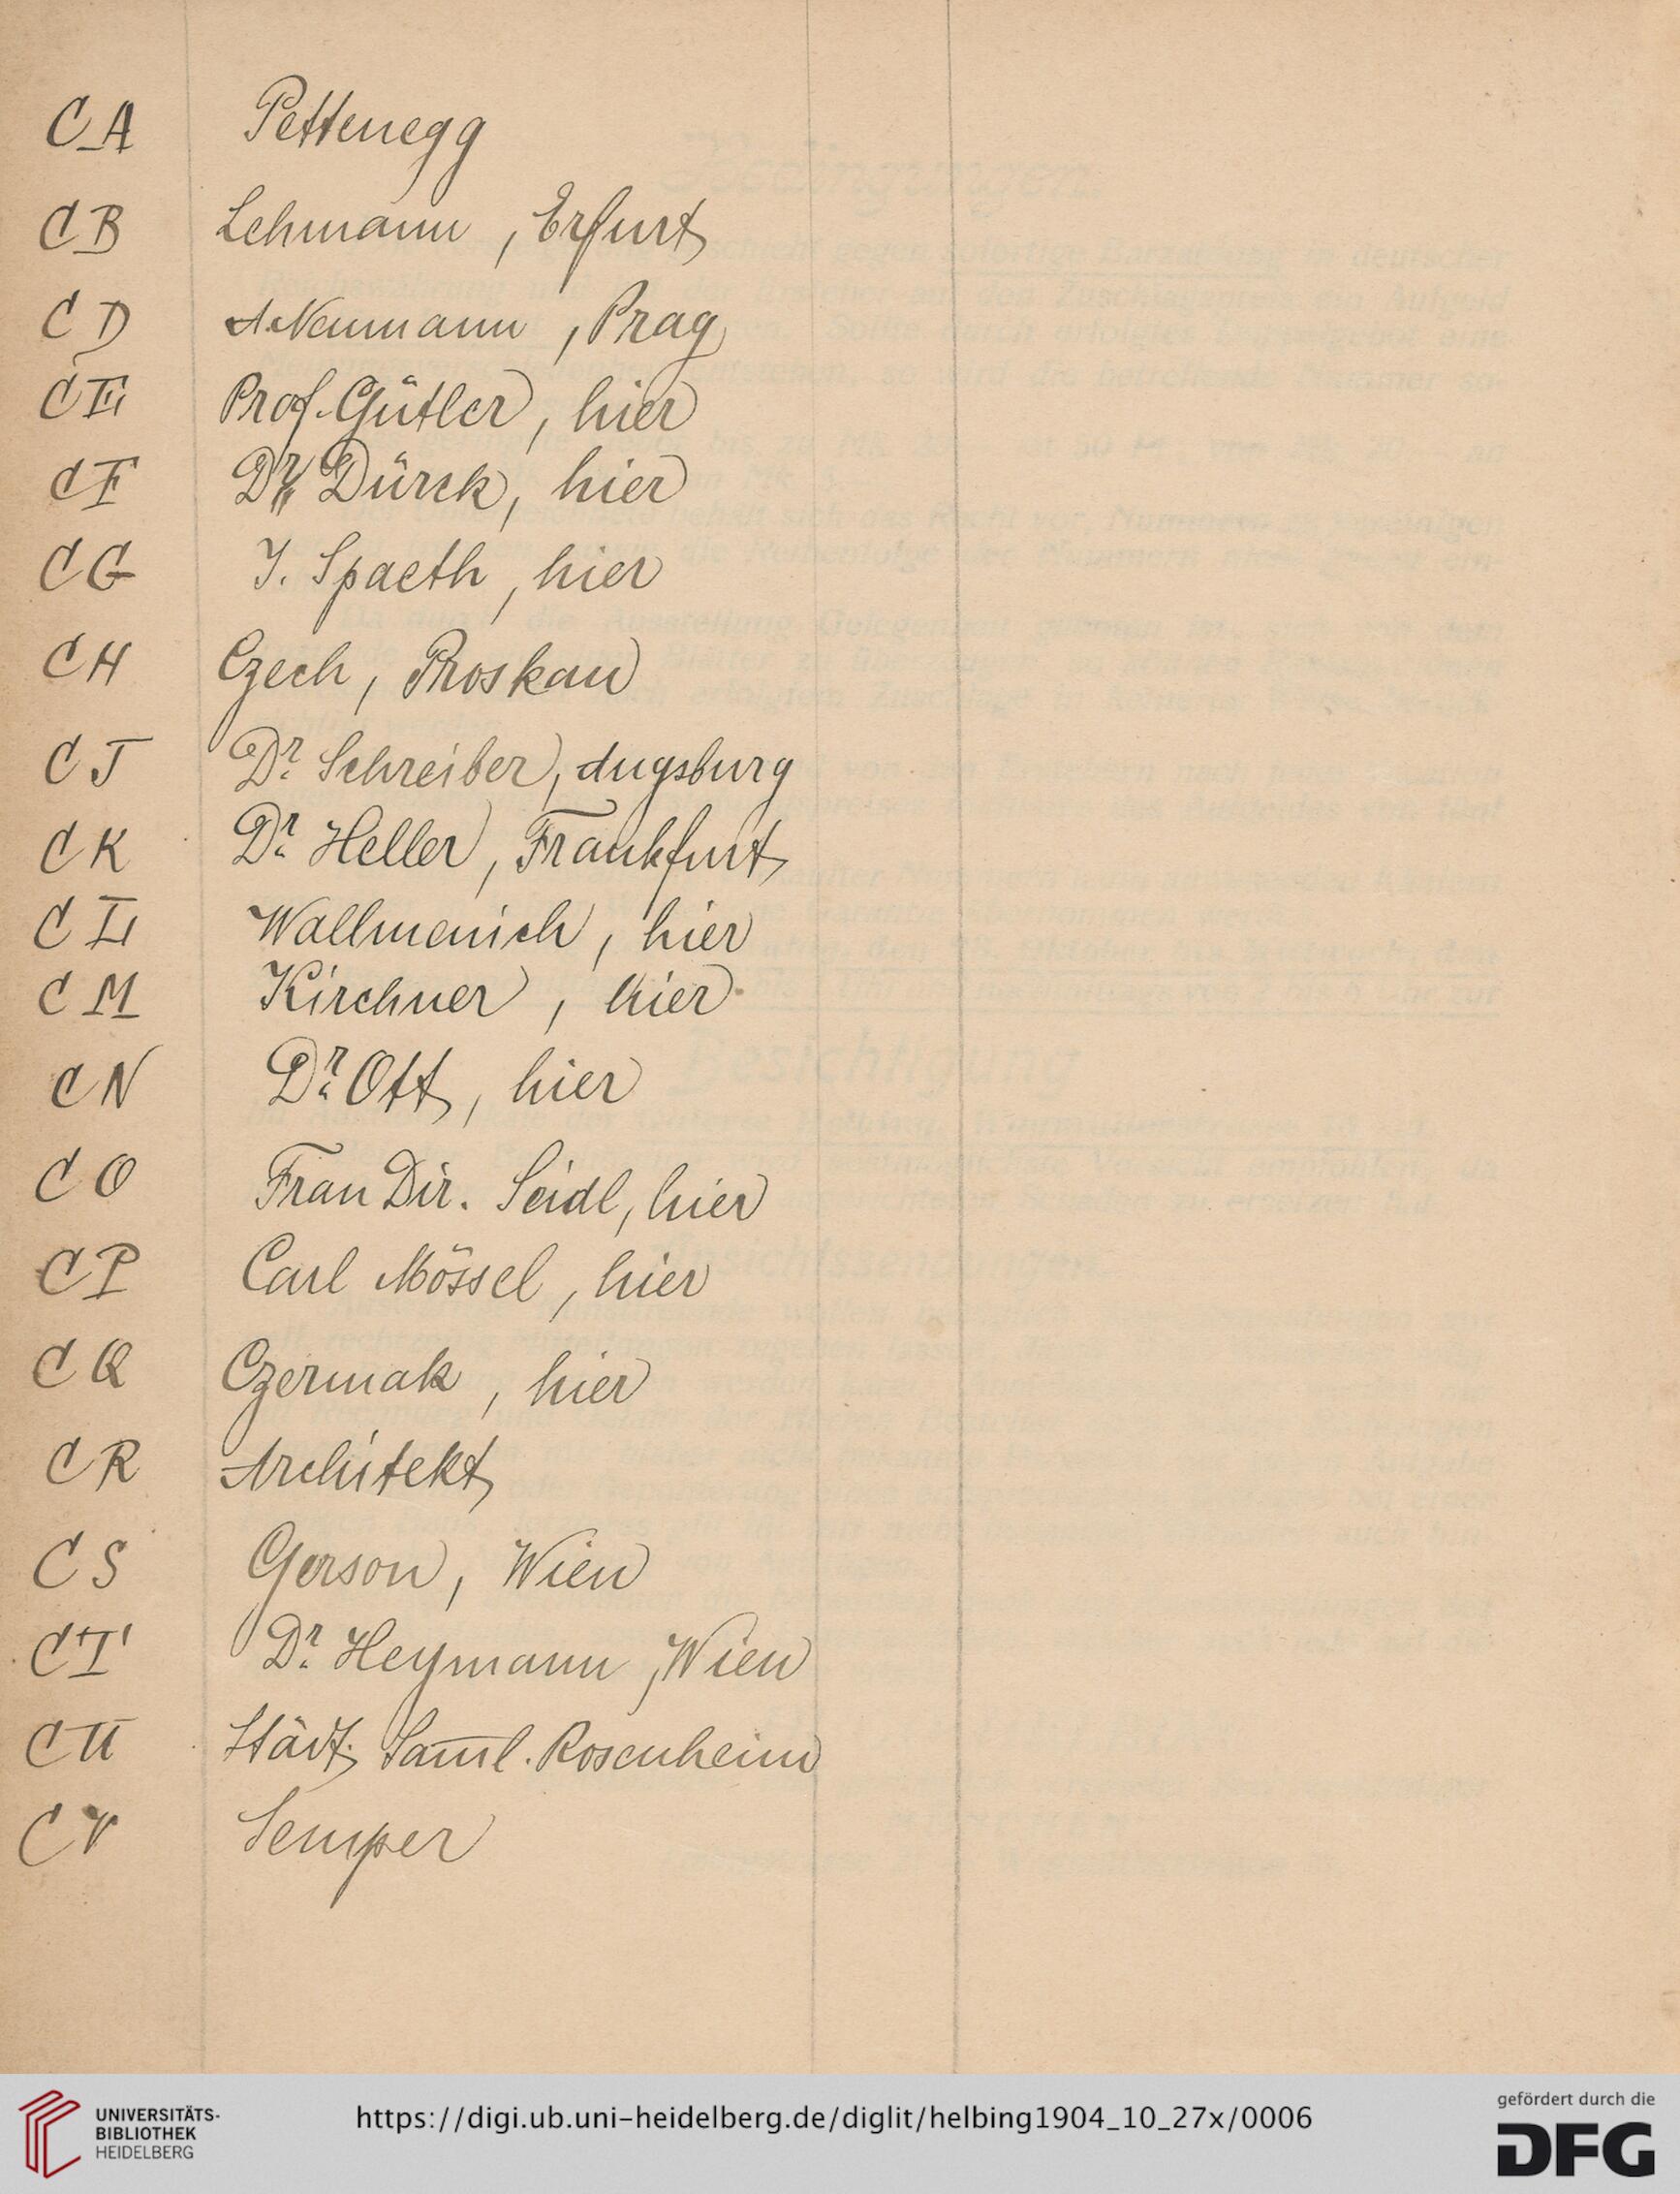 CA Pettenegg
CB Lehmann, Erfurt
CD A. Neumann, Prag
CE Prof. Gütler, hier
CF Dr. Dürck, hier
CG J. Spaeth, hier
CH Czech, Proskau
CJ Dr. Schreiber, Augsburg
CK Dr. Heller, Frankfurt
CL Wallmenich, hier
CM Kirchner, hier
CN Dr. Ott, hier
CO Frau Dir. Seidl, hier
CP Carl Mössel, hier
CQ Czermak, hier
CR Architekt
CS Gerson, Wien
CT Dr. Heymann, Wien
CU Städt. Saml. Rosenheim
CV Semper
UNIVERSITÄTS-
BIBLIOTHEK
HEIDELBERG
https://digi.ub.uni-heidelberg.de/diglit/helbing1904_10_27x/0006
gefördert durch die
DFG